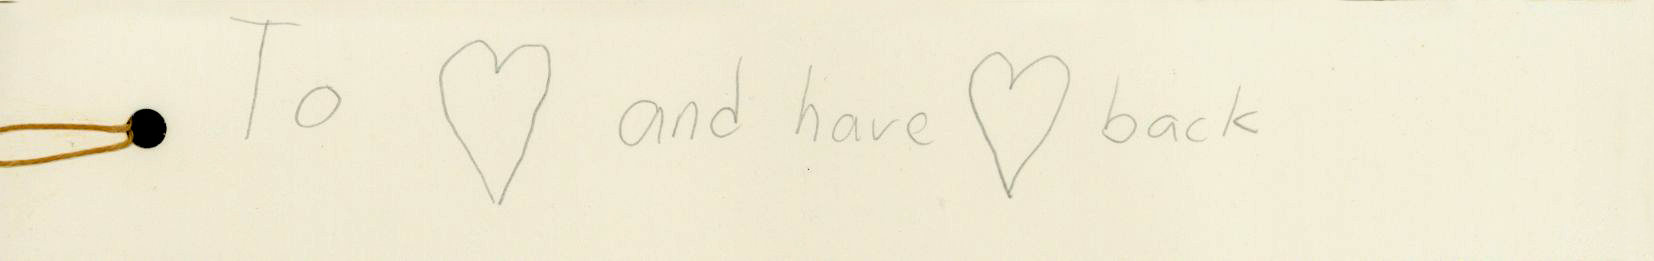 To ♡ and have ♡ back